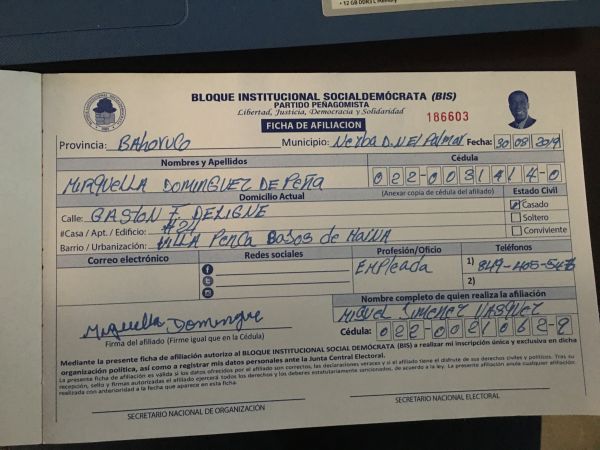 12 GB DDR3 L Memory
BLOQUE INSTITUCIONAL SOCIALDEMÓCRATA (BIS)
PARTIDO PEÑAGOMISTA
Libertad, Justicia, Democracia y Solidaridad
186603
FICHA DE AFILIACION
Provincia: BAhoruco Municipio: Neyba D.N El Palmar Fecha: 30 08 2019
Nombres y Apellidos Cédula
MIRQUELLA DOMINGUEZ DE PEÑA 022-0031414-0
Domicilio Actual (Anexar copia de cédula del afiliado) Estado Civil
Calle: GASTON F. DELIGNE Casado
#Casa / Apt. / Edificio: #24 Soltero
Barrio / Urbanización: VILLA PENCA BAJOS de HAINA Conviviente
Correo electrónico Redes sociales Profesión/Oficio Teléfonos
EMPleada 1) 849-405-5476
2)
Nombre completo de quien realiza la afiliación
MIGUEL JIMENEZ VASQUEZ
Mirquella Domingue
Firma del afiliado (Firme igual que en la Cédula) Cédula: 022-0021062-9
Mediante la presente ficha de afiliación autorizo al BLOQUE INSTITUCIONAL SOCIAL DEMÓCRATA (BIS) a realizar mi inscripción única y exclusiva en dicha
organización política, así como a registrar mis datos personales ante la Junta Central Electoral.
La presente ficha de afiliación es valida si los datos ofrecidos por el afiliado son correctos, las declaraciones veraces y si el afiliado tiene el disfrute de sus derechos civiles y políticos. Tras su
recepción, sello y firmas autorizadas el afiliado ejercerá todos los derechos y los deberes estatutariamente sancionados, de acuerdo a la ley. La presente afiliación anula cualquier afiliación
realizada con anterioridad a la fecha que aparece en esta ficha.
SECRETARIO NACIONAL DE ORGANIZACIÓN SECRETARIO NACIONAL ELECTORAL